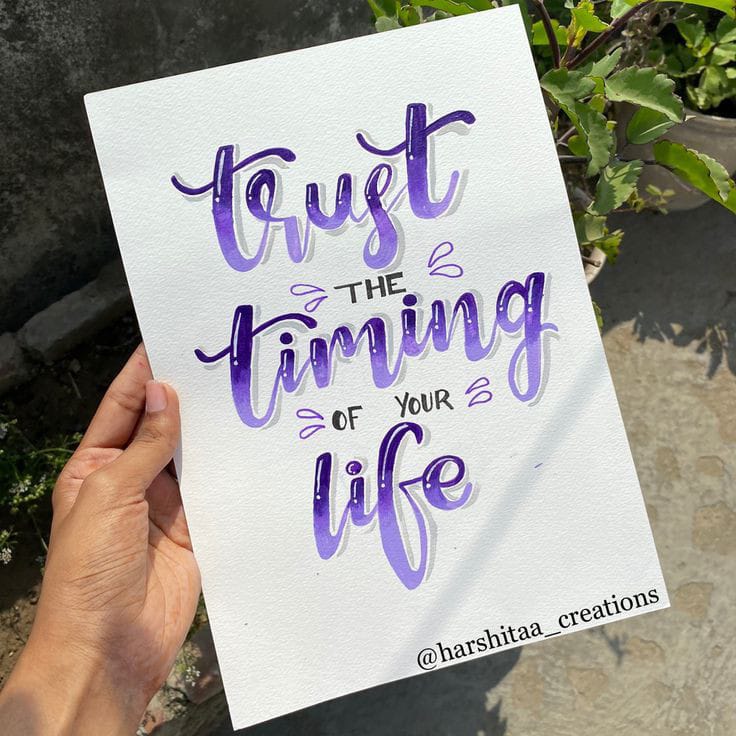 trust
THE
timing
OF YOUR
life
@harshitaa_creations